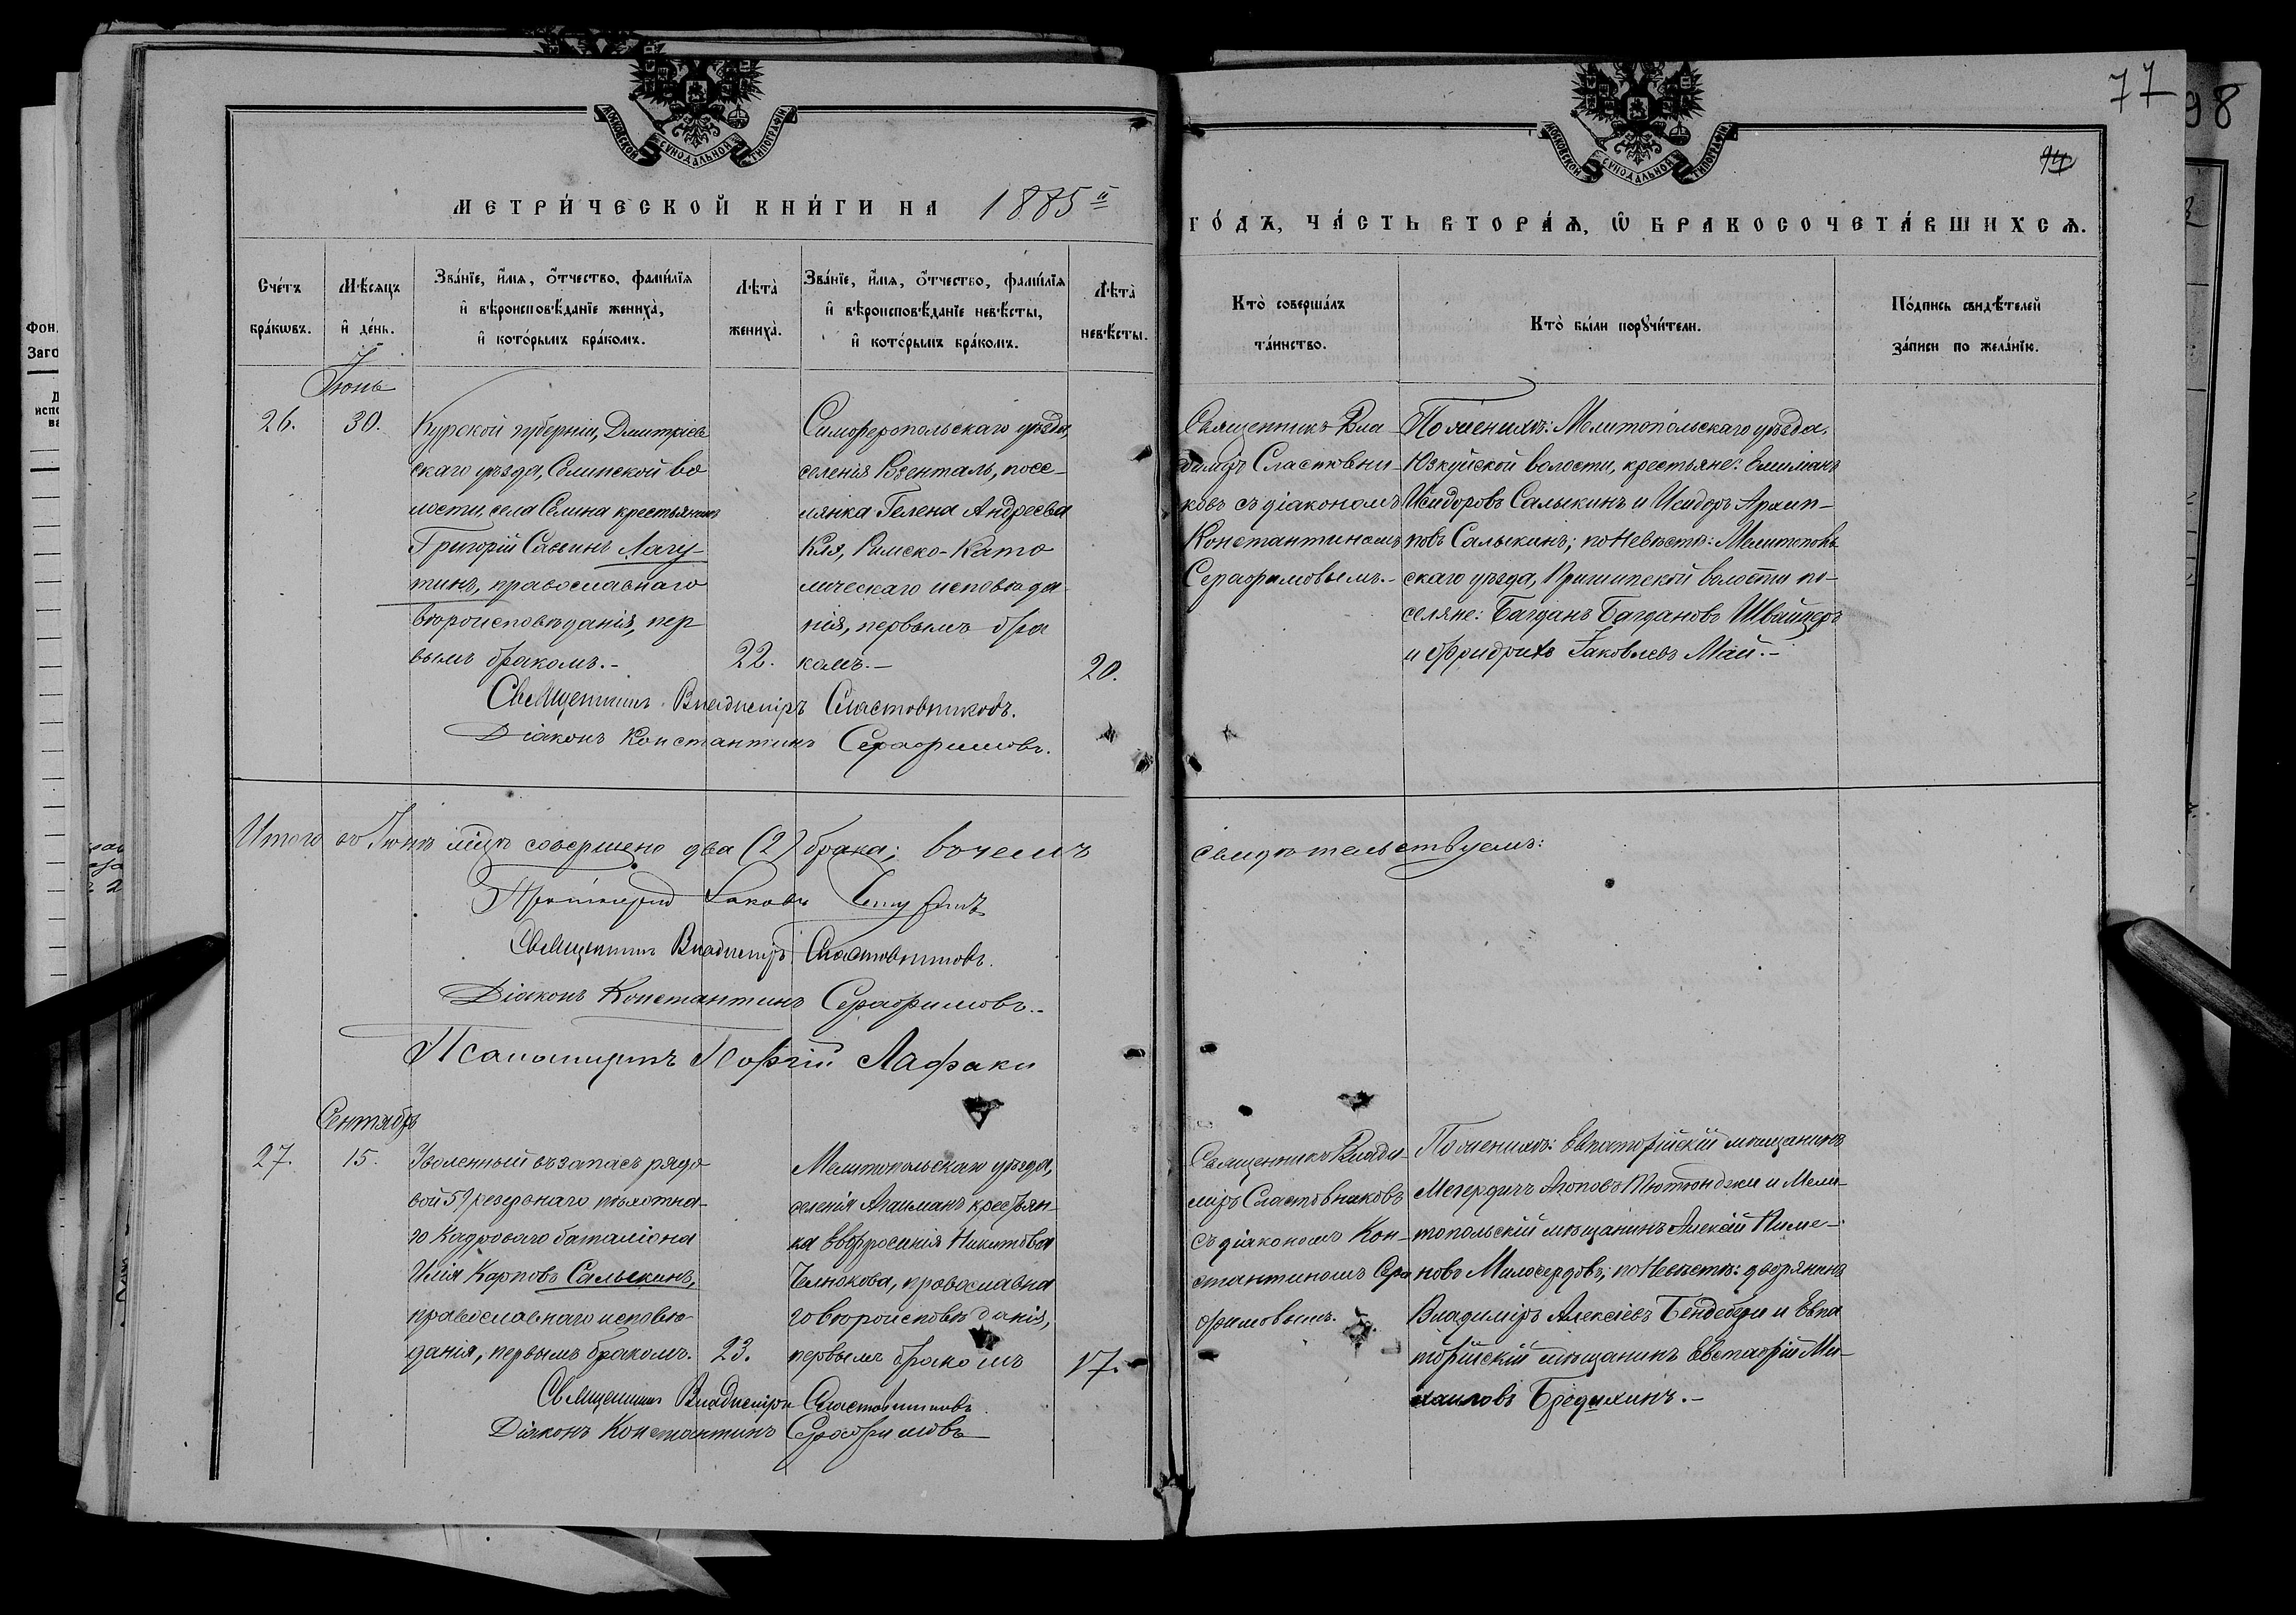 77
98
94
МОСКОВСКОЙ СѴНОДАЛЬНОЙ ТИПОГРАФІИ
МОСКОВСКОЙ СѴНОДАЛЬНОЙ ТИПОГРАФІИ
МЕТРИ́ЧЕСКОЙ КНИ́ГИ НА 1885й
ГО́ДЪ, ЧА́СТЬ ВТОРА́Ѧ, Ѿ БРАКОСОЧЕТА́ВШИХСѦ.
Сче́тъ бра́кѡвъ.
Мѣ́сяцъ и҆ де́нь.
Зва́нїе, и҆́мѧ, ѻ҆́тчество, фами́лїѧ
и҆ вѣроисповѣ́данїе жениха̀,
и҆ кото́рымъ бра́комъ.
Лѣта̀ жениха̀.
Зва́нїе, и҆́мѧ, ѻ҆́тчество, фами́лїѧ
и҆ вѣроисповѣ́данїе невѣ́сты,
и҆ кото́рымъ бра́комъ.
Лѣта̀ невѣ́сты.
Кто̀ соверша́лъ
та́инство.
Кто̀ бы́ли порꙋчи́тели.
По́дпись свидѣ́телей
за́писи по жела́нїю.
Іюнь
26.
30.
Курской губерніи, Дмитріев
скаго уѣзда, Селинской во
лости, села Селина крестьянинъ
Григорій Саввинъ Лагу
тинъ, православнаго
вѣроисповѣданія, пер
вымъ бракомъ.-
22.
Симферопольскаго уѣзда,
селенія Розенталь, посе-
лянка Гелена Андреева
Кля, Римско-Като
лическаго исповѣда
нія, первымъ бра
комъ.-
20.
Священникъ Вла
диміръ Сластовни-
ковъ съ діакономъ
Константиномъ
Серафимовымъ.-
По женихѣ: Мелитопольскаго уѣзда,
Юзкуйской волости, крестьяне: Емиліанъ
Исидоровъ Салыкинъ и Исидоръ Архип-
повъ Салыкинъ; по невѣстѣ: Мелитополь
скаго уѣзда, Пришипской волости по-
селяне: Богданъ Богдановъ Швайцеръ
и Фридрихъ Іаковлевъ Май.-
Священникъ Владиміръ Сластовниковъ.
Діаконъ Константинъ Серафимовъ.
Итого въ Іюнѣ мцѣ совершено два (2) брака; въ чемъ
свидѣтельствуемъ:
Протоіерей Іаковъ
Священникъ Владиміръ Сластовниковъ.
Діаконъ Константинъ Серафимовъ.-
Псаломщикъ Георгій Лафаки
Сентябрь
27.
15.
Уволенный въ запасъ рядо
вой 59 резервнаго пѣхотна-
го Кадроваго баталіона
Илія Карповъ Салыкинъ,
православнаго исповѣ
данія, первымъ бракомъ.
23.
Мелитопольскаго уѣзда,
селенія Агайманъ крестьян-
ка Евфросинія Никитова
Челнокова, православна
го вѣроисповѣданія,
первымъ бракомъ
17.
Священникъ Влади
міръ Сластовниковъ
съ діакономъ Кон-
стантиномъ Сера
фимовымъ.
По женихѣ: Евпаторійскій мѣщанинъ
Мегердичъ Агоповъ Тютюнджи и Мели-
топольскій мѣщанинъ Алексій Пиме-
новъ Милосердовъ; по невѣстѣ: дворянинъ
Владиміръ Алексіевъ Бендебери и Евпа
торійскій мѣщанинъ Евстафій Ми-
хаиловъ Бредихинъ.-
Священникъ Владиміръ Сластовниковъ.
Діаконъ Константинъ Серафимовъ